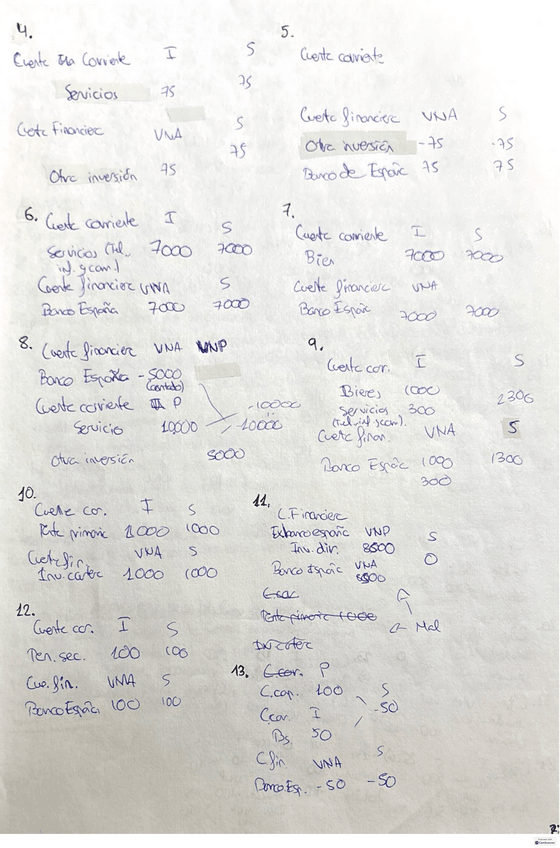 4.
Cuenta Cta Corriente I S
Servicios 75 75
Cuenta Financiera VNA S
75
Otra inversión 75
5.
Cuenta corriente
Cuenta financiera VNA S
Otra inversión -75 -75
Banco de España 75 75
6. Cuenta corriente I S
Servicios (Tel., 7000 7000
inf. y com.)
Cuenta financiera VNA S
Banco España 7000 7000
7.
Cuenta corriente I S
Bien 7000 7000
Cuenta financiera VNA
Banco España 7000 7000
8. Cuenta financiera VNA VNP
Banco España -5000
(contado)
Cuenta corriente P
-10000
Servicio 10000 -10000
Otra inversión 5000
9.
Cuenta cor. I S
Bienes 1000 2300
Servicios 300
(tel. inf. y com.)
Cuenta finan. VNA S
Banco España 1000 1300
300
10.
Cuenta cor. I S
Renta primaria 1000 1000
Cuenta fin. VNA S
Inv. cartera 1000 1000
11.
C. Financiera
Exbanco españa VNP S
Inv. dir. 8500 0
Banco España VNA
8500
Renta primaria 1000
Mal
Inv cartera
12.
Cuenta cor. I S
Ren. sec. 100 100
Cue. fin. VNA S
Banco España 100 100
13. C. cor. P
C. cap. 100 S
-50
C. cor. I
Bs. 50
C fin. VNA S
Banco Esp. -50 -50